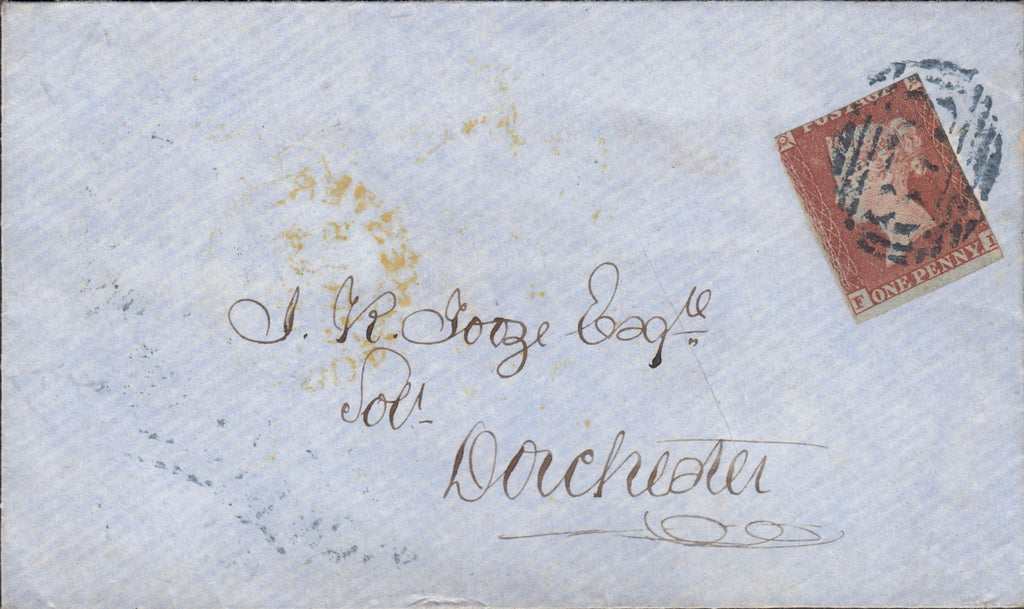 POSTAGE
F ONE PENNY I
J. K. Tooze Esqre
Solr
Dorchester